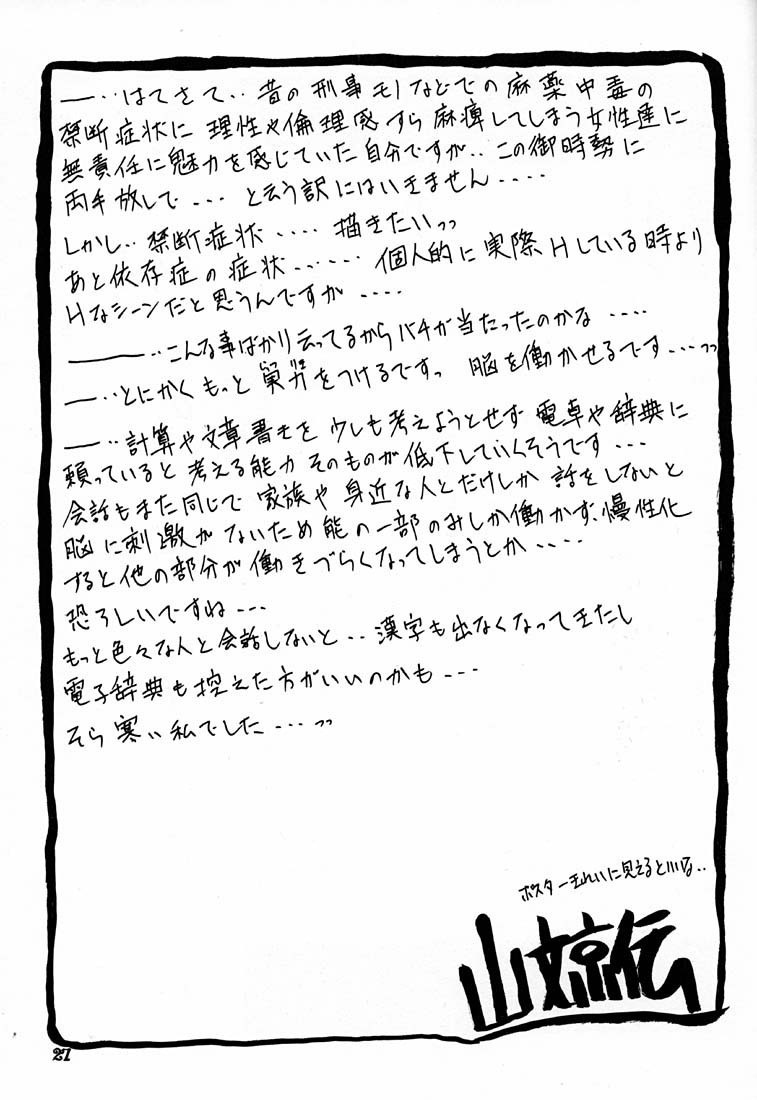 ―‥はてさて‥昔の刑事モノなどでの麻薬中毒の
禁断症状に理性や倫理感すら麻痺してしまう女性達に
無責任に魅力を感じていた自分ですが‥この御時勢に
両手放しで‥‥と云う訳にはいきません‥‥
しかし‥禁断症状‥‥描きたいっっ
あと依存症の症状‥‥‥個人的に実際Hしている時より
Hなシーンだと思うんですが‥‥
―――‥こんな事ばかり云ってるからバチが当たったのかな‥‥
―‥とにかくもっと をつけるですっ 脳を働かせるです‥‥っっ
―‥計算や文章書きを少しも考えようとせず電卓や辞典に
頼っていると考える能力そのものが低下していくそうです‥‥
会話もまた同じで家族や身近な人とだけしか話をしないと
脳に刺激がないため能の一部のみしか働かず、慢性化
すると他の部分が働きづらくなってしまうとか‥‥
恐ろしいですね‥‥
もっと色々な人と会話しないと‥漢字も出なくなってきたし
電子辞典も控えた方がいいのかも‥‥
そら寒い私でした‥‥っっ
ポスターきれいに見えるといいな‥
山文京伝
27